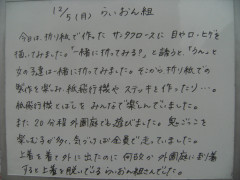 12/5(月) らいおん組
今日は、折り紙で作った サンタクロースに 目や口・ヒゲを
描いてみました。"一緒に切ってみる？"と誘うと「うん」と
女の子達は一緒に切ってみました。そこから折り紙での
製作を楽しみ、紙飛行機や ステッキを作ったり…。
紙飛行機とばしを みんなで楽しんでいました。
また20分程 外園庭でも遊びました。鬼ごっこを
楽しむ子が多く、気づけば全員で走っていました。
上着を着て外に出たのに 何故か 外園庭に到着
すると上着を脱いでいる らいおん組さんでした。